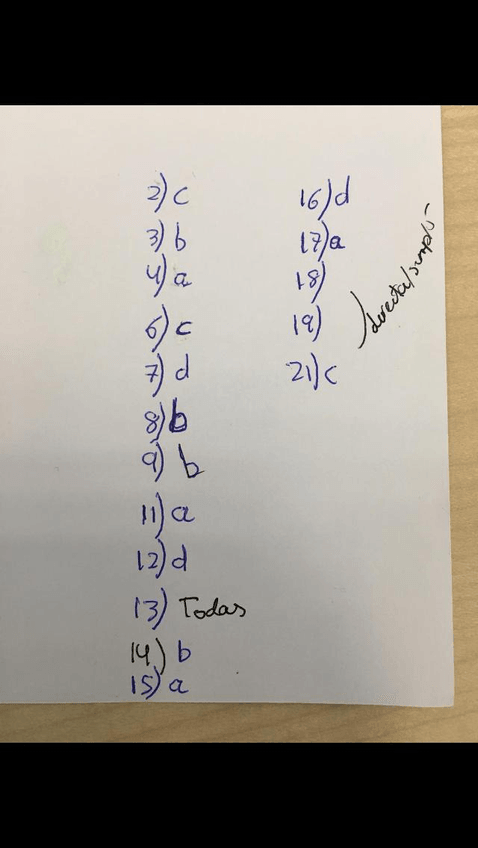 2) c
3) b
4) a
6) c
7) d
8) b
9) b
11) a
12) d
13) Todas
14) b
15) a
16) d
17) a
18)
19)
21) c